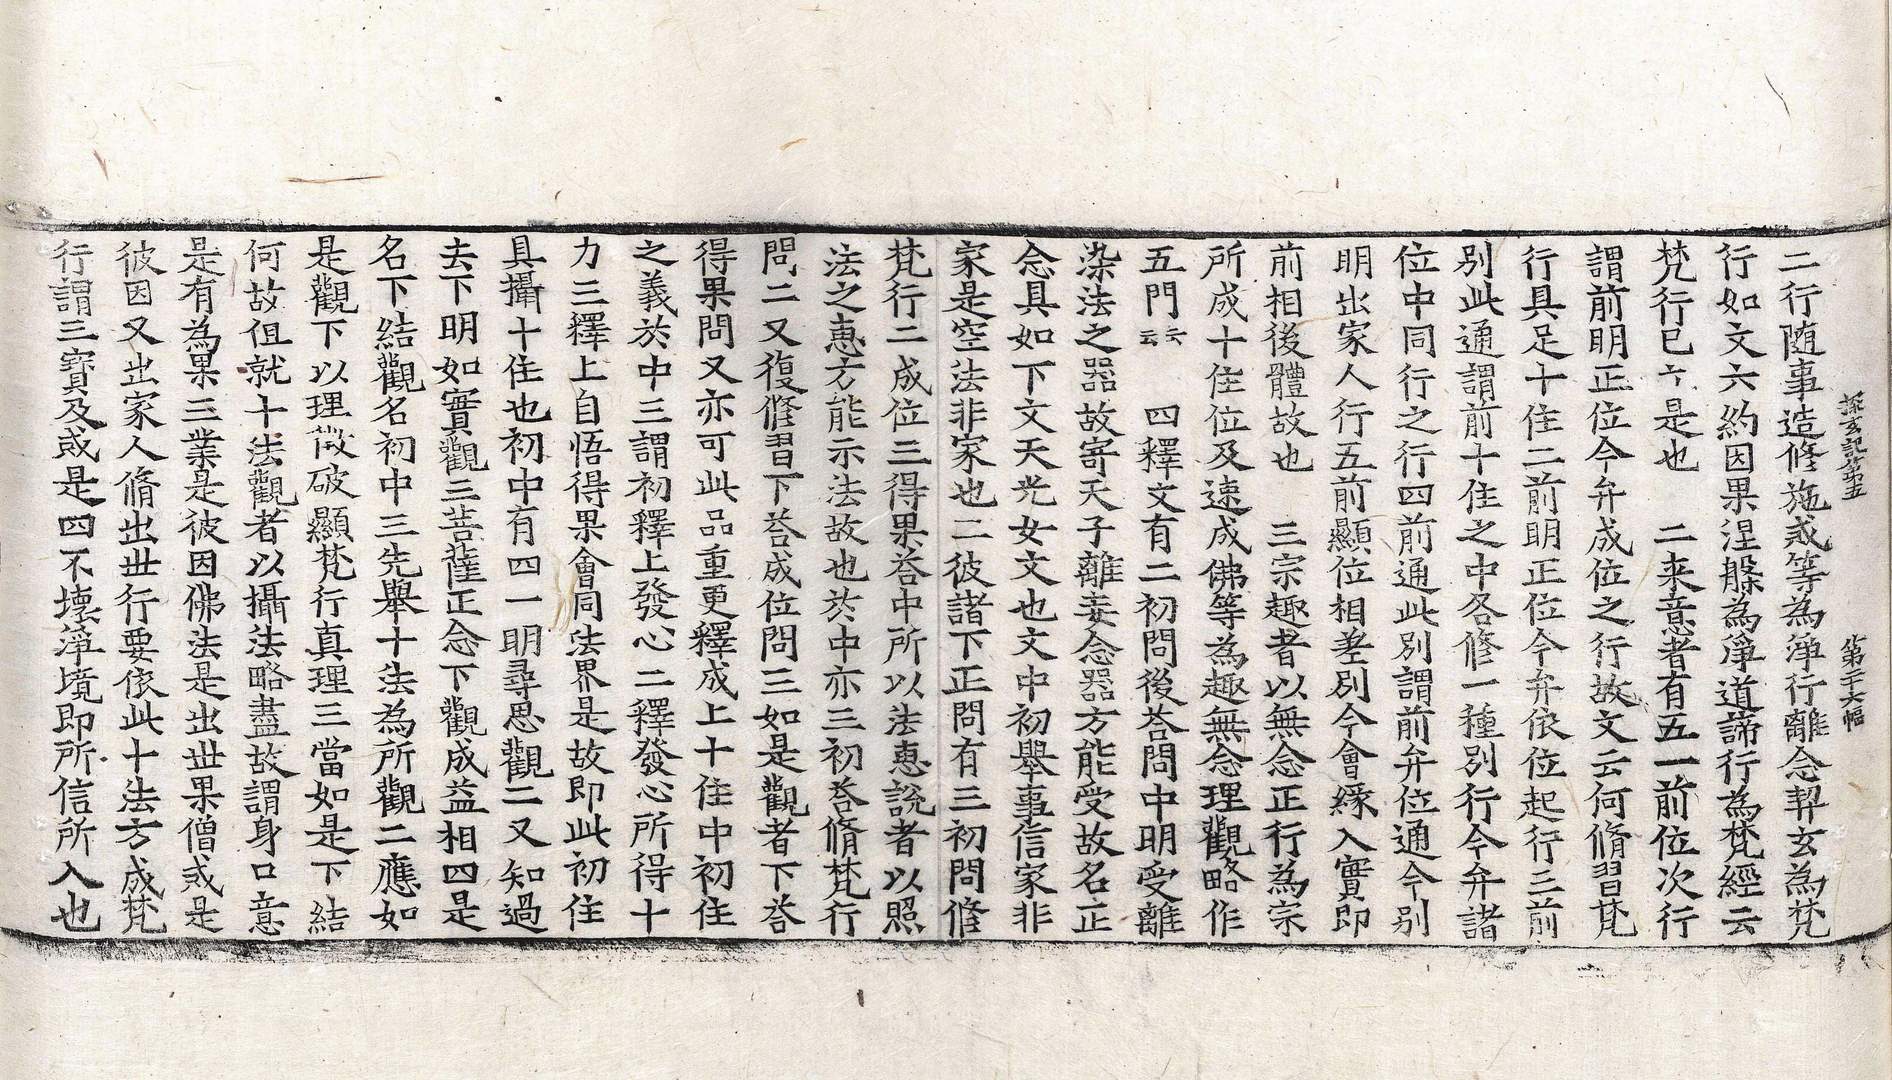 探玄記第五　第二十六幅
二行随事造修施戒等為淨行離念契玄為梵
行如文六約因果涅槃為淨道諦行為梵經云
梵行已亇是也　二来意者有五一前位次行
謂前明正位今弁成位之行故文云何脩習梵
行具足十住二前明正位今弁依位起行三前
別此通謂前十住之中各修一種別行今弁諸
位中同行之行四前通此別謂前弁位通今別
明出家人行五前顯位相差別今會緣入實即
前相後體故也　三宗趣者以無念正行為宗
所成十住位及速成佛等為趣無念理觀略作
五門云云　四釋文有二初問後荅問中明受離
染法之器故寄天子離妻念器方能受故名正
念具如下文天光女文也文中初舉事信家非
家是空法非家也二彼諸下正問有三初問修
梵行二成位三得果荅中所以法惠說者以照
法之惠方能示法故也於中亦三初荅脩梵行
問二又復修習下荅成位問三如是觀者下荅
得果問又亦可此品重更釋成上十住中初住
之義於中三謂初釋上發心二釋發心所得十
力三釋上自悟得果會同法界是故即此初住
具攝十住也初中有四一明尋思觀二又知過
去下明如實觀三菩薩正念下觀成益相四是
名下結觀名初中三先舉十法為所觀二應如
是觀下以理徵破顯梵行真理三當如是下結
何故但就十法觀者以攝法略盡故謂身口意
是有為果三業是彼因佛法是出世果僧戒是
彼因又出家人脩出世行要依此十法方成梵
行謂三寶及戒是四不壞淨境即所信所入也